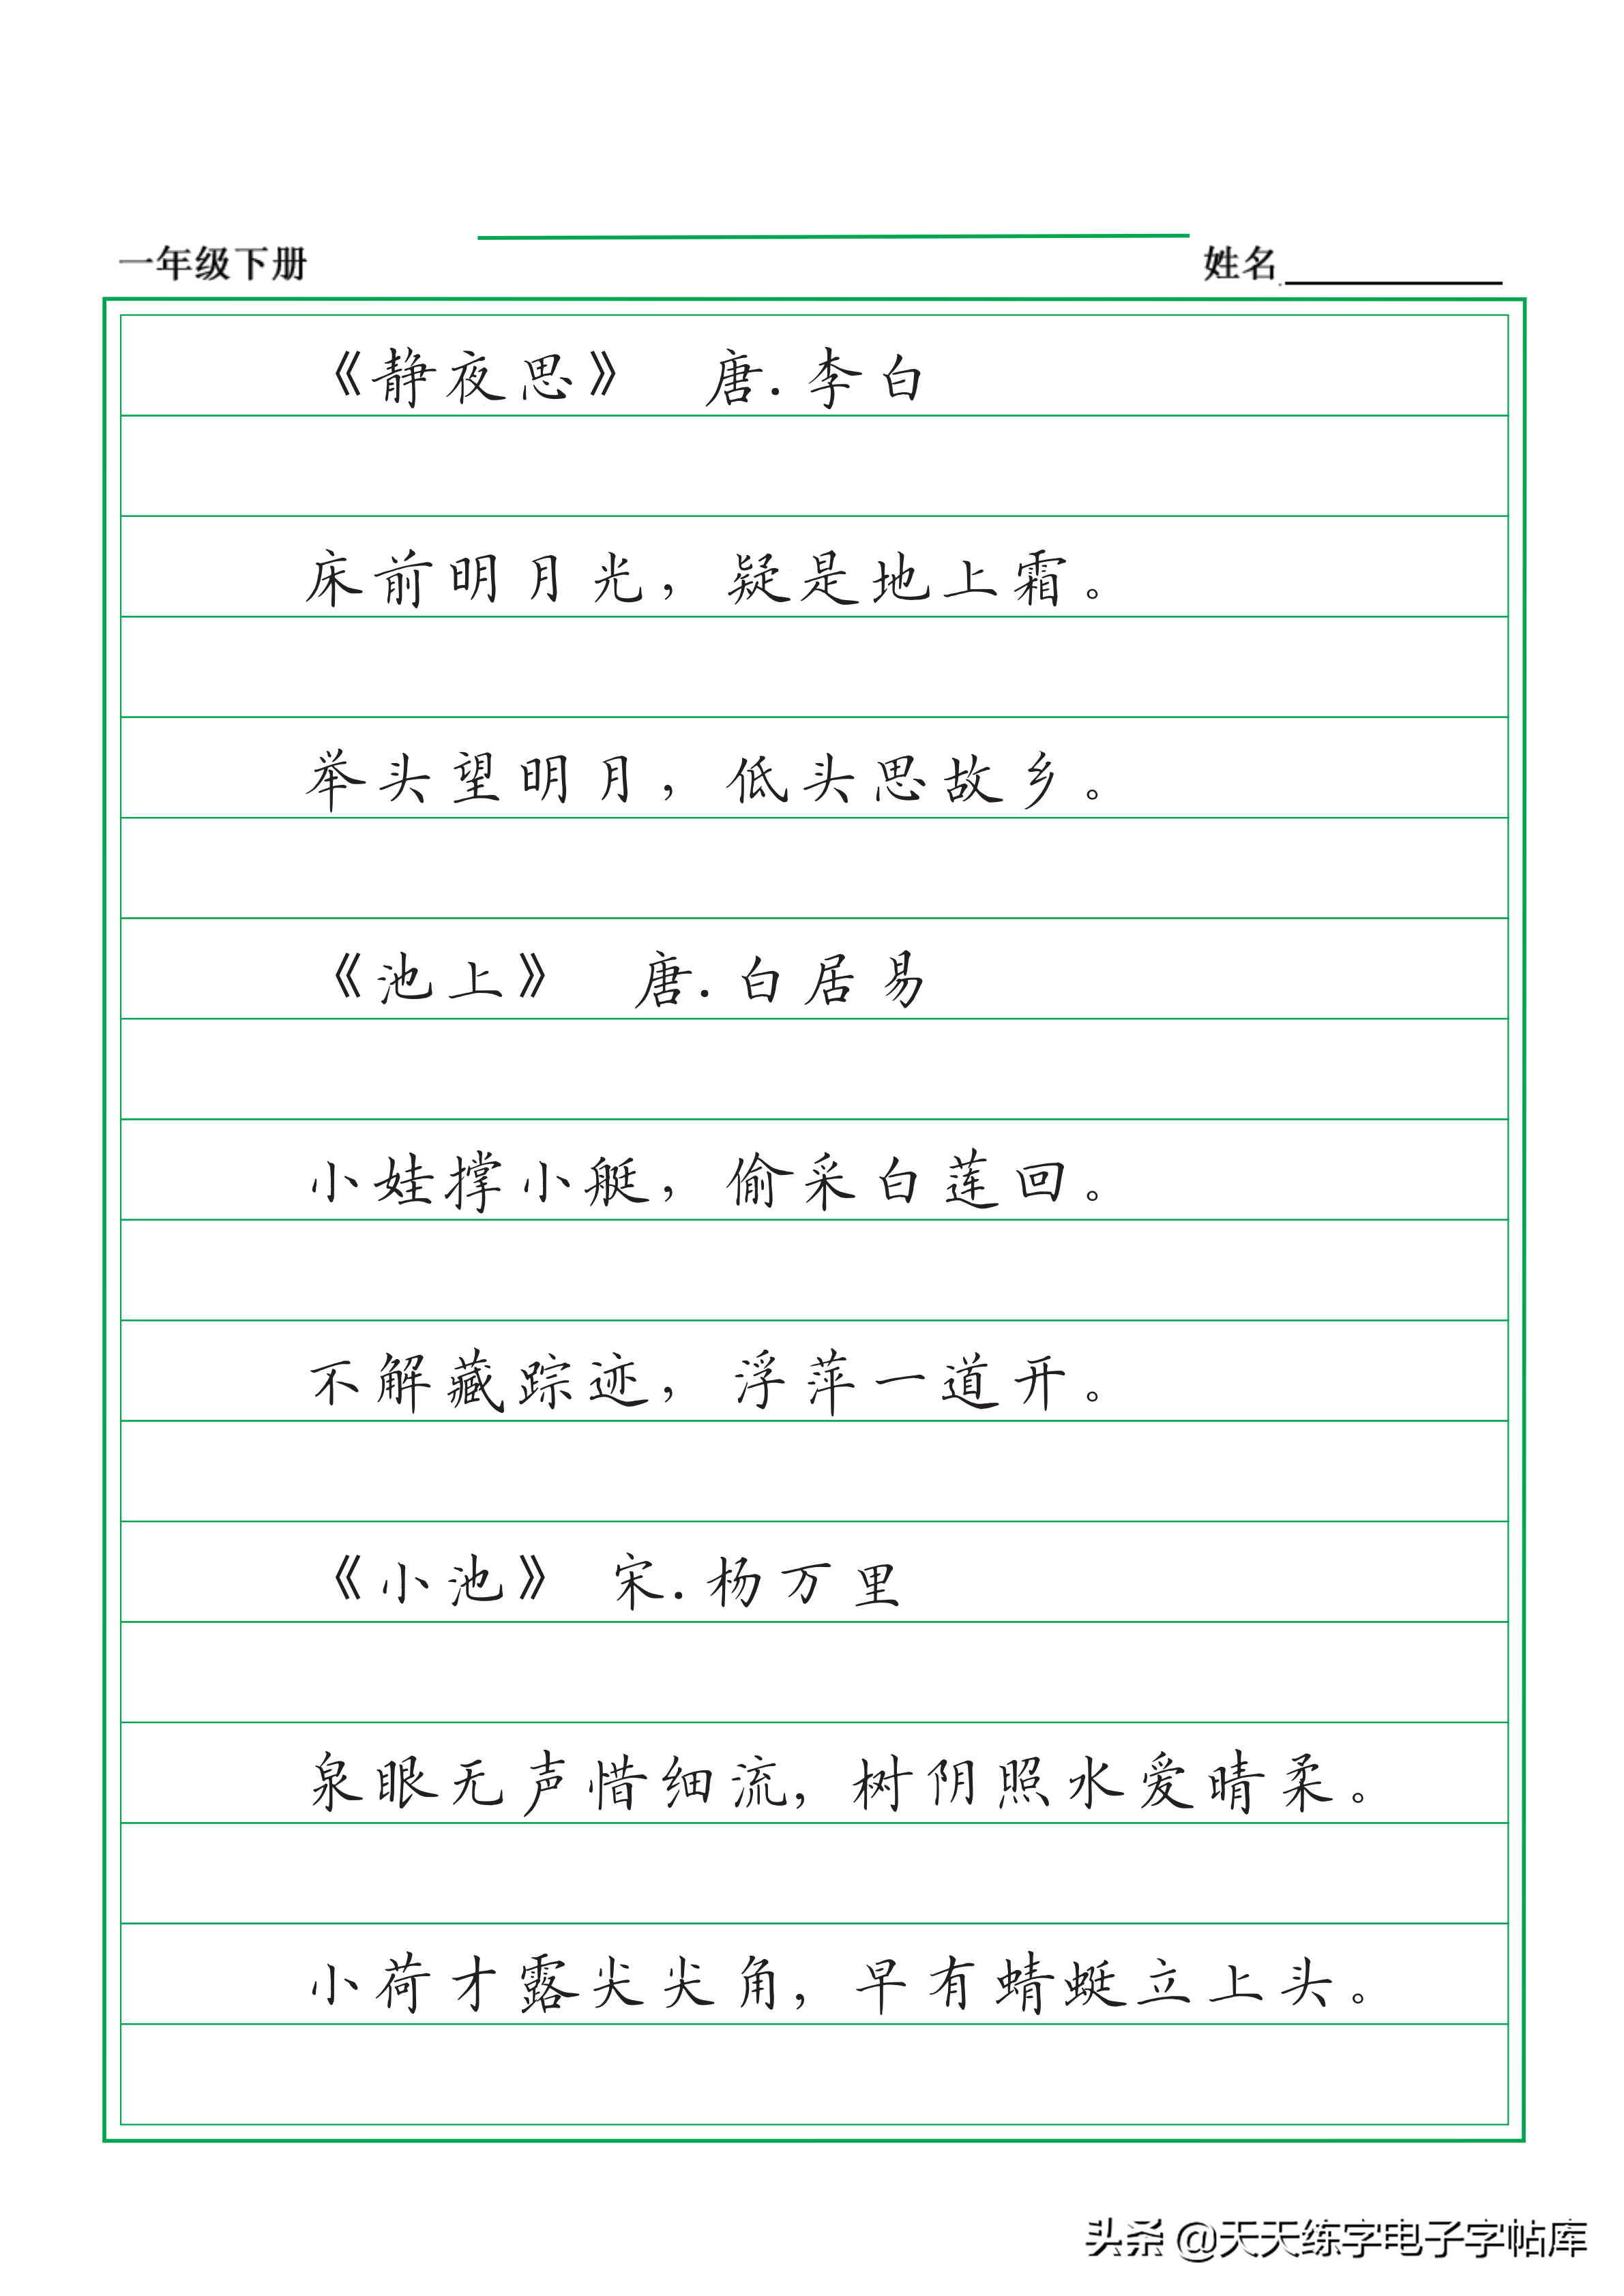 一年级下册 姓名
《静夜思》 唐.李白
床前明月光，疑是地上霜。
举头望明月，低头思故乡。
《池上》 唐.白居易
小娃撑小艇，偷采白莲回。
不解藏踪迹，浮萍一道开。
《小池》 宋.杨万里
泉眼无声惜细流，树阴照水爱晴柔。
小荷才露尖尖角，早有蜻蜓立上头。
头条 @天天练字电子字帖库